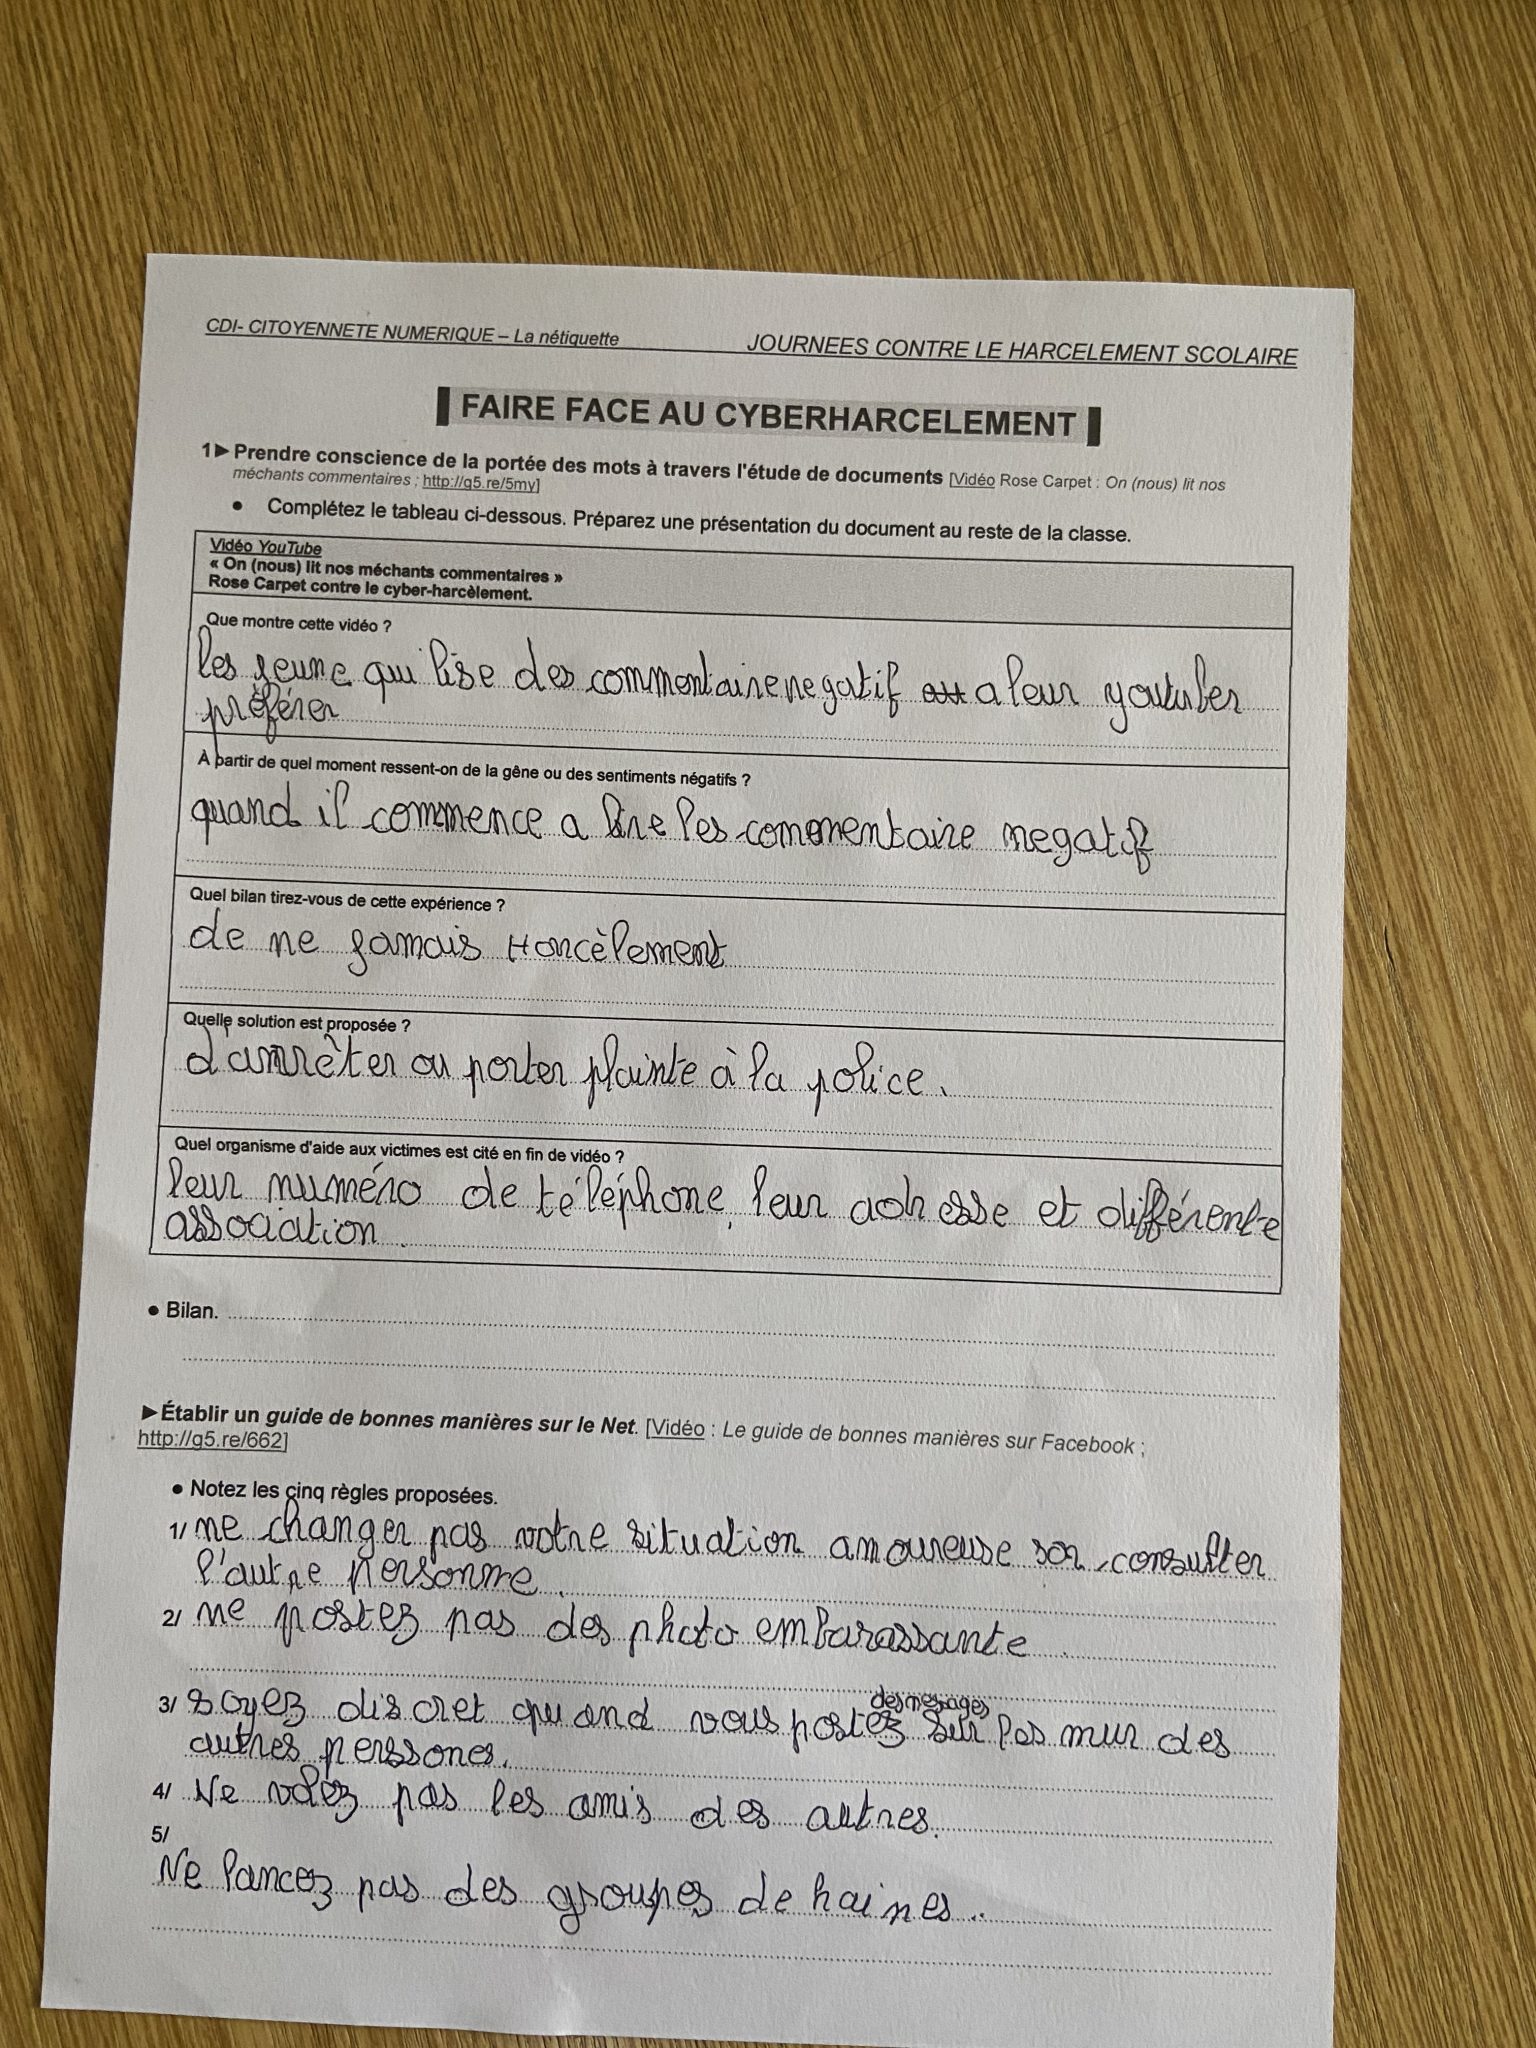 CDI- CITOYENNETE NUMERIQUE – La nétiquette JOURNEES CONTRE LE HARCELEMENT SCOLAIRE
FAIRE FACE AU CYBERHARCELEMENT
1►Prendre conscience de la portée des mots à travers l'étude de documents [Vidéo Rose Carpet : On (nous) lit nos
méchants commentaires ; http://g5.re/5my]
● Complétez le tableau ci-dessous. Préparez une présentation du document au reste de la classe.
Vidéo YouTube
« On (nous) lit nos méchants commentaires »
Rose Carpet contre le cyber-harcèlement.
Que montre cette vidéo ?
les jeune qui lise des commentaire negatif a leur youtuber
préférer
À partir de quel moment ressent-on de la gêne ou des sentiments négatifs ?
quand il commence a lire les commentaire negatif
Quel bilan tirez-vous de cette expérience ?
de ne jamais Harcèlement
Quelle solution est proposée ?
d'arrêter ou porter plainte à la police.
Quel organisme d'aide aux victimes est cité en fin de vidéo ?
leur numéro de téléphone, leur adresse et différente
association.
● Bilan.
►Établir un guide de bonnes manières sur le Net. [Vidéo : Le guide de bonnes manières sur Facebook ;
http://g5.re/662]
● Notez les cinq règles proposées.
1/ ne changer pas votre situation amoureuse son consulter
l'autre personne.
2/ ne postez pas des photo embarassante.
3/ soyez discret quand vous postez des messages sur les mur des
autres perssones.
4/ Ne volez pas les amis des autres.
5/
Ne lancez pas des groupes de haines..